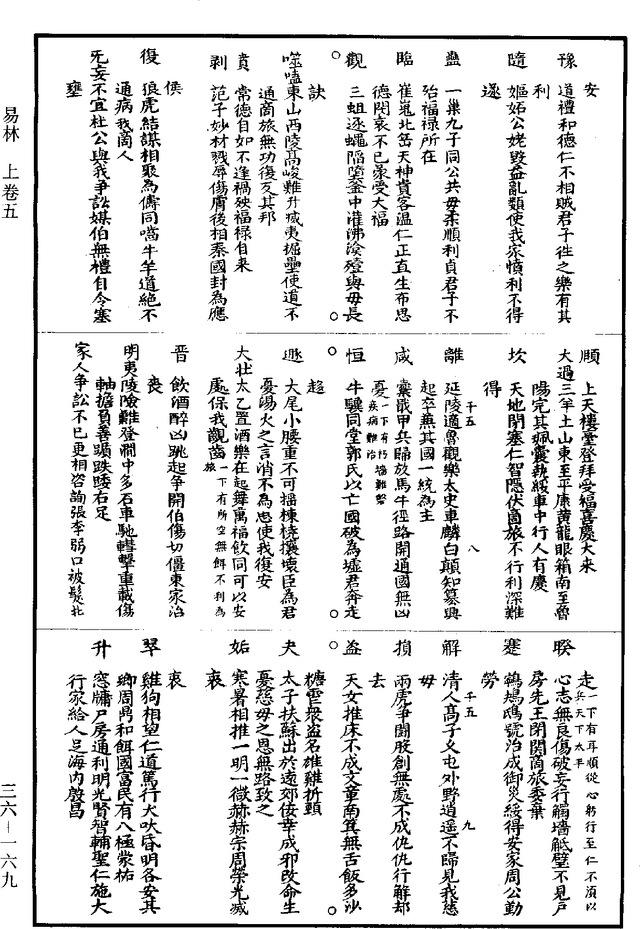 易林　上卷五
安
豫　道禮和德仁不相賊君子往之樂有其
利
隨　嫗妬公姥毀益亂類使我家憤利不得
遂
蠱　一巢九子同公共母柔順利貞君子不
殆福祿所在
臨　崔嵬北岳天神貴客溫仁正直生布恩
德閔哀不已蒙受大福
觀　三蛆逐蠅陷墮釜中灌沸渰殪與母長
訣
噬嗑東山西陵高峻難升滅夷掘壘使道不
通商旅無功復反其邦
賁　常德自如不逢禍殃福祿自來
剝　范子妙材戮辱傷膚後相秦國封為應
侯
復　狼虎結謀相聚為儔同嚙牛羊道絕不
通病我商人
无妄不宜杜公與我爭訟媒伯無禮自令塞
壅
頤　上天樓臺登拜受福喜慶大來
大過三羊上山東至平康黃龍服箱南至魯
陽完其佩囊執綏車中行人有慶
坎　天地閉塞仁智隱伏商旅不行利深難
得
千五　八
離　延陵適魯觀樂太史車轔白顛知秦興
起卒兼其國一統為主
咸　櫜戢甲兵歸放馬牛徑路開通國無凶
憂一下有朽墻難築疾病難治
恒　牛驥同堂郭氏以亡國破為墟君奔走
趨
遯　大尾小腰重不可搖棟橈榱壞臣為君
憂湯火之言消不為患使我復安
大壯太乙置酒樂在起舞萬福攸同可以安
處保我覿齒一下有所空無餌不利為旅
晉　飲酒醉凶跳起爭鬥伯傷仲僵東家治
喪
明夷陵險難登澗中多石車馳轊擊重載傷
軸擔負善躓跌踒右足
家人爭訟不已更相咨詢張李弱口被髮北
走一下有耳順從心躬行至仁不須以兵天下太平
睽　心志無良傷破妄行觸墻觝壁不見戶
房先王閉關商旅委棄
蹇　鵂鴟鴞號治成御災綏得安家周公勤
勞
千五　九
解　清人高子久屯外野逍遙不歸見我慈
母
損　兩虎爭鬥股創無處不成仇讎行解卻
去
益　天女推床不成文章南箕無舌飯多沙
糠雪眾盜名雄雞折頸
夬　太子扶蘇出於遠郊佞幸成邪改命生
憂慈母之恩無路致之
姤　寒暑相推一明一微赫赫宗周榮光滅
衰
萃　雞狗相望仁道篤行大吠昏明各安其
鄉周鼎和餌國富民有八極蒙祐
升　窓牖戶房通利明光賢智輔聖仁施大
行家給人足海內殷昌
三六－一六九